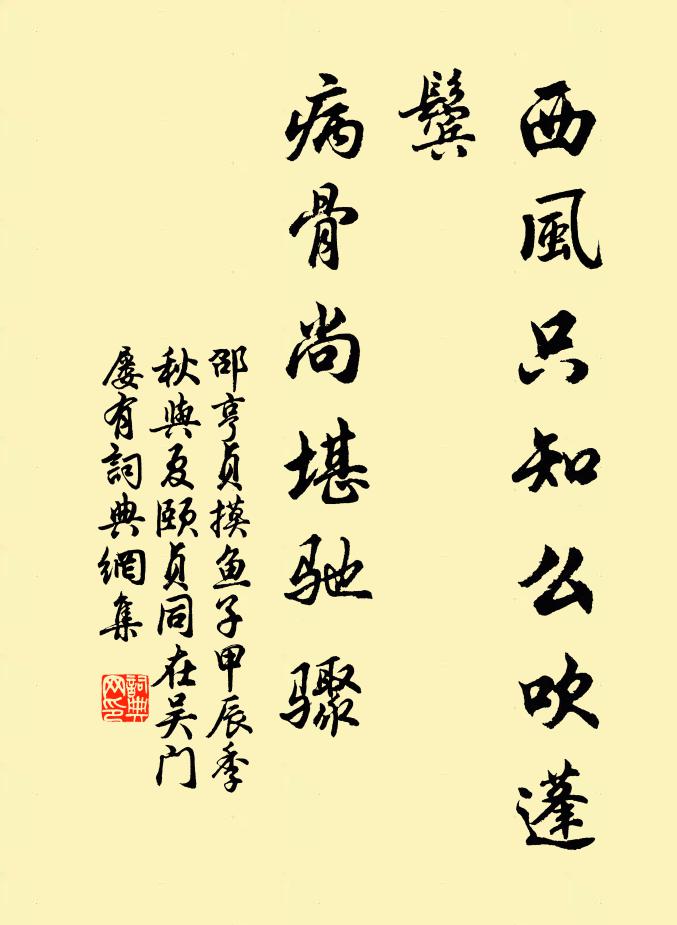 西風只知么吹蓬
鬓
病骨尚堪驰骤
邵亨貞摸鱼子甲辰季
秋與夏颐貞同在吴门
屡有詞典網集
詞典
网印